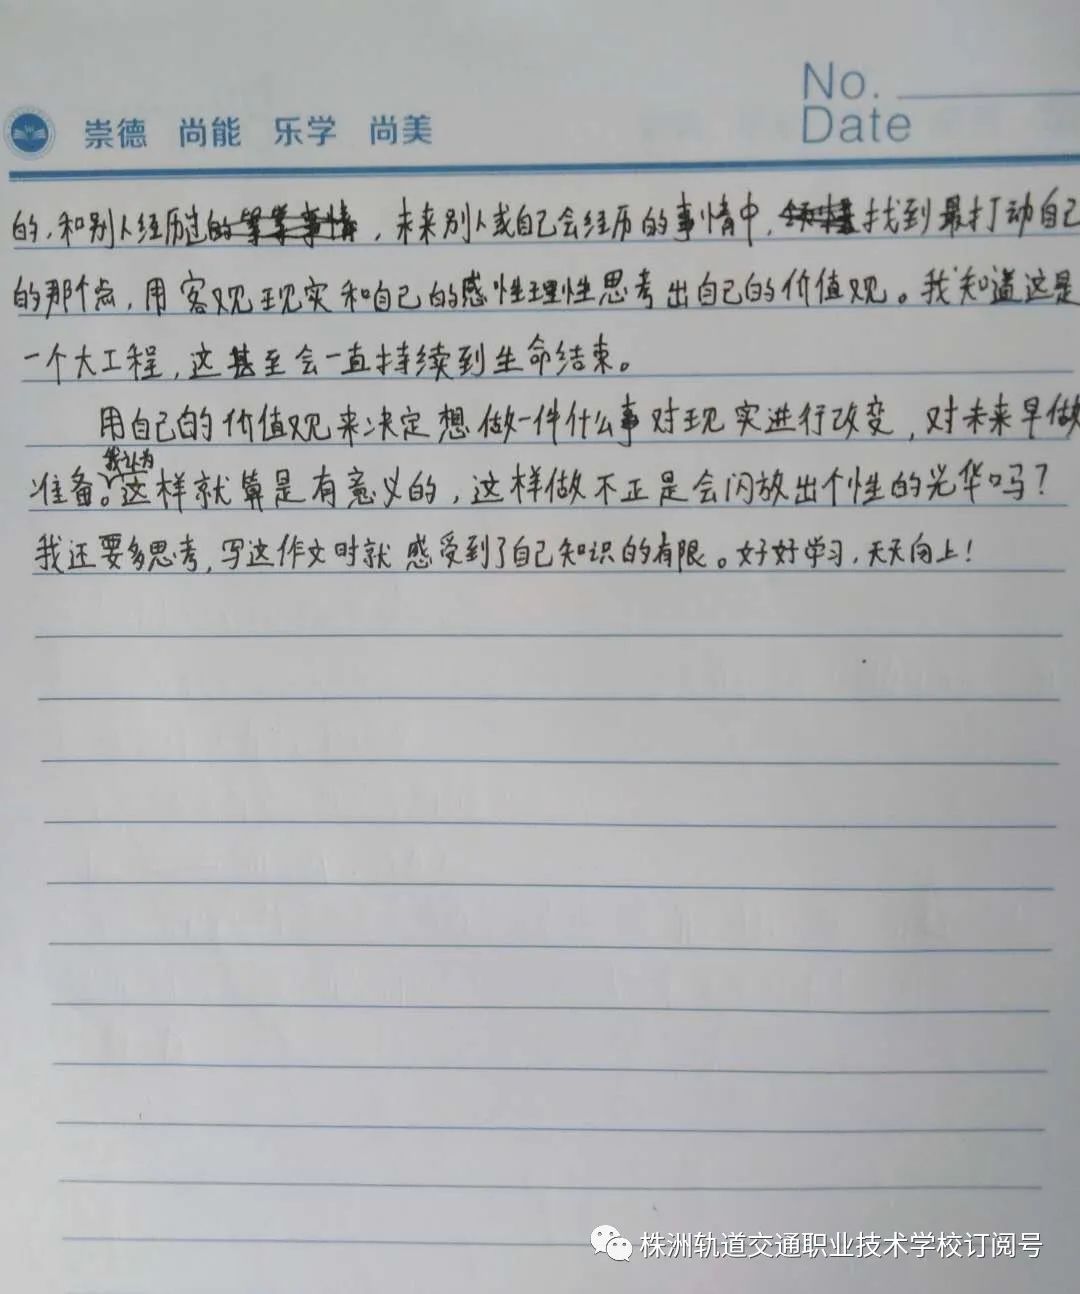 No.
Date
崇德 尚能 乐学 尚美
的,和别人经历过的,未来别人或自己会经历的事情中,找到最打动自己
的那个点,用客观现实和自己的感性理性思考出自己的价值观。我知道这是
一个大工程,这甚至会一直持续到生命结束。
用自己的价值观来决定想做一件什么事对现实进行改变,对未来早做
我认为
准备。这样就算是有意义的,这样做不正是会闪放出个性的光华吗?
我还要多思考,写这作文时就感受到了自己知识的有限。好好学习,天天向上!
株洲轨道交通职业技术学校订阅号